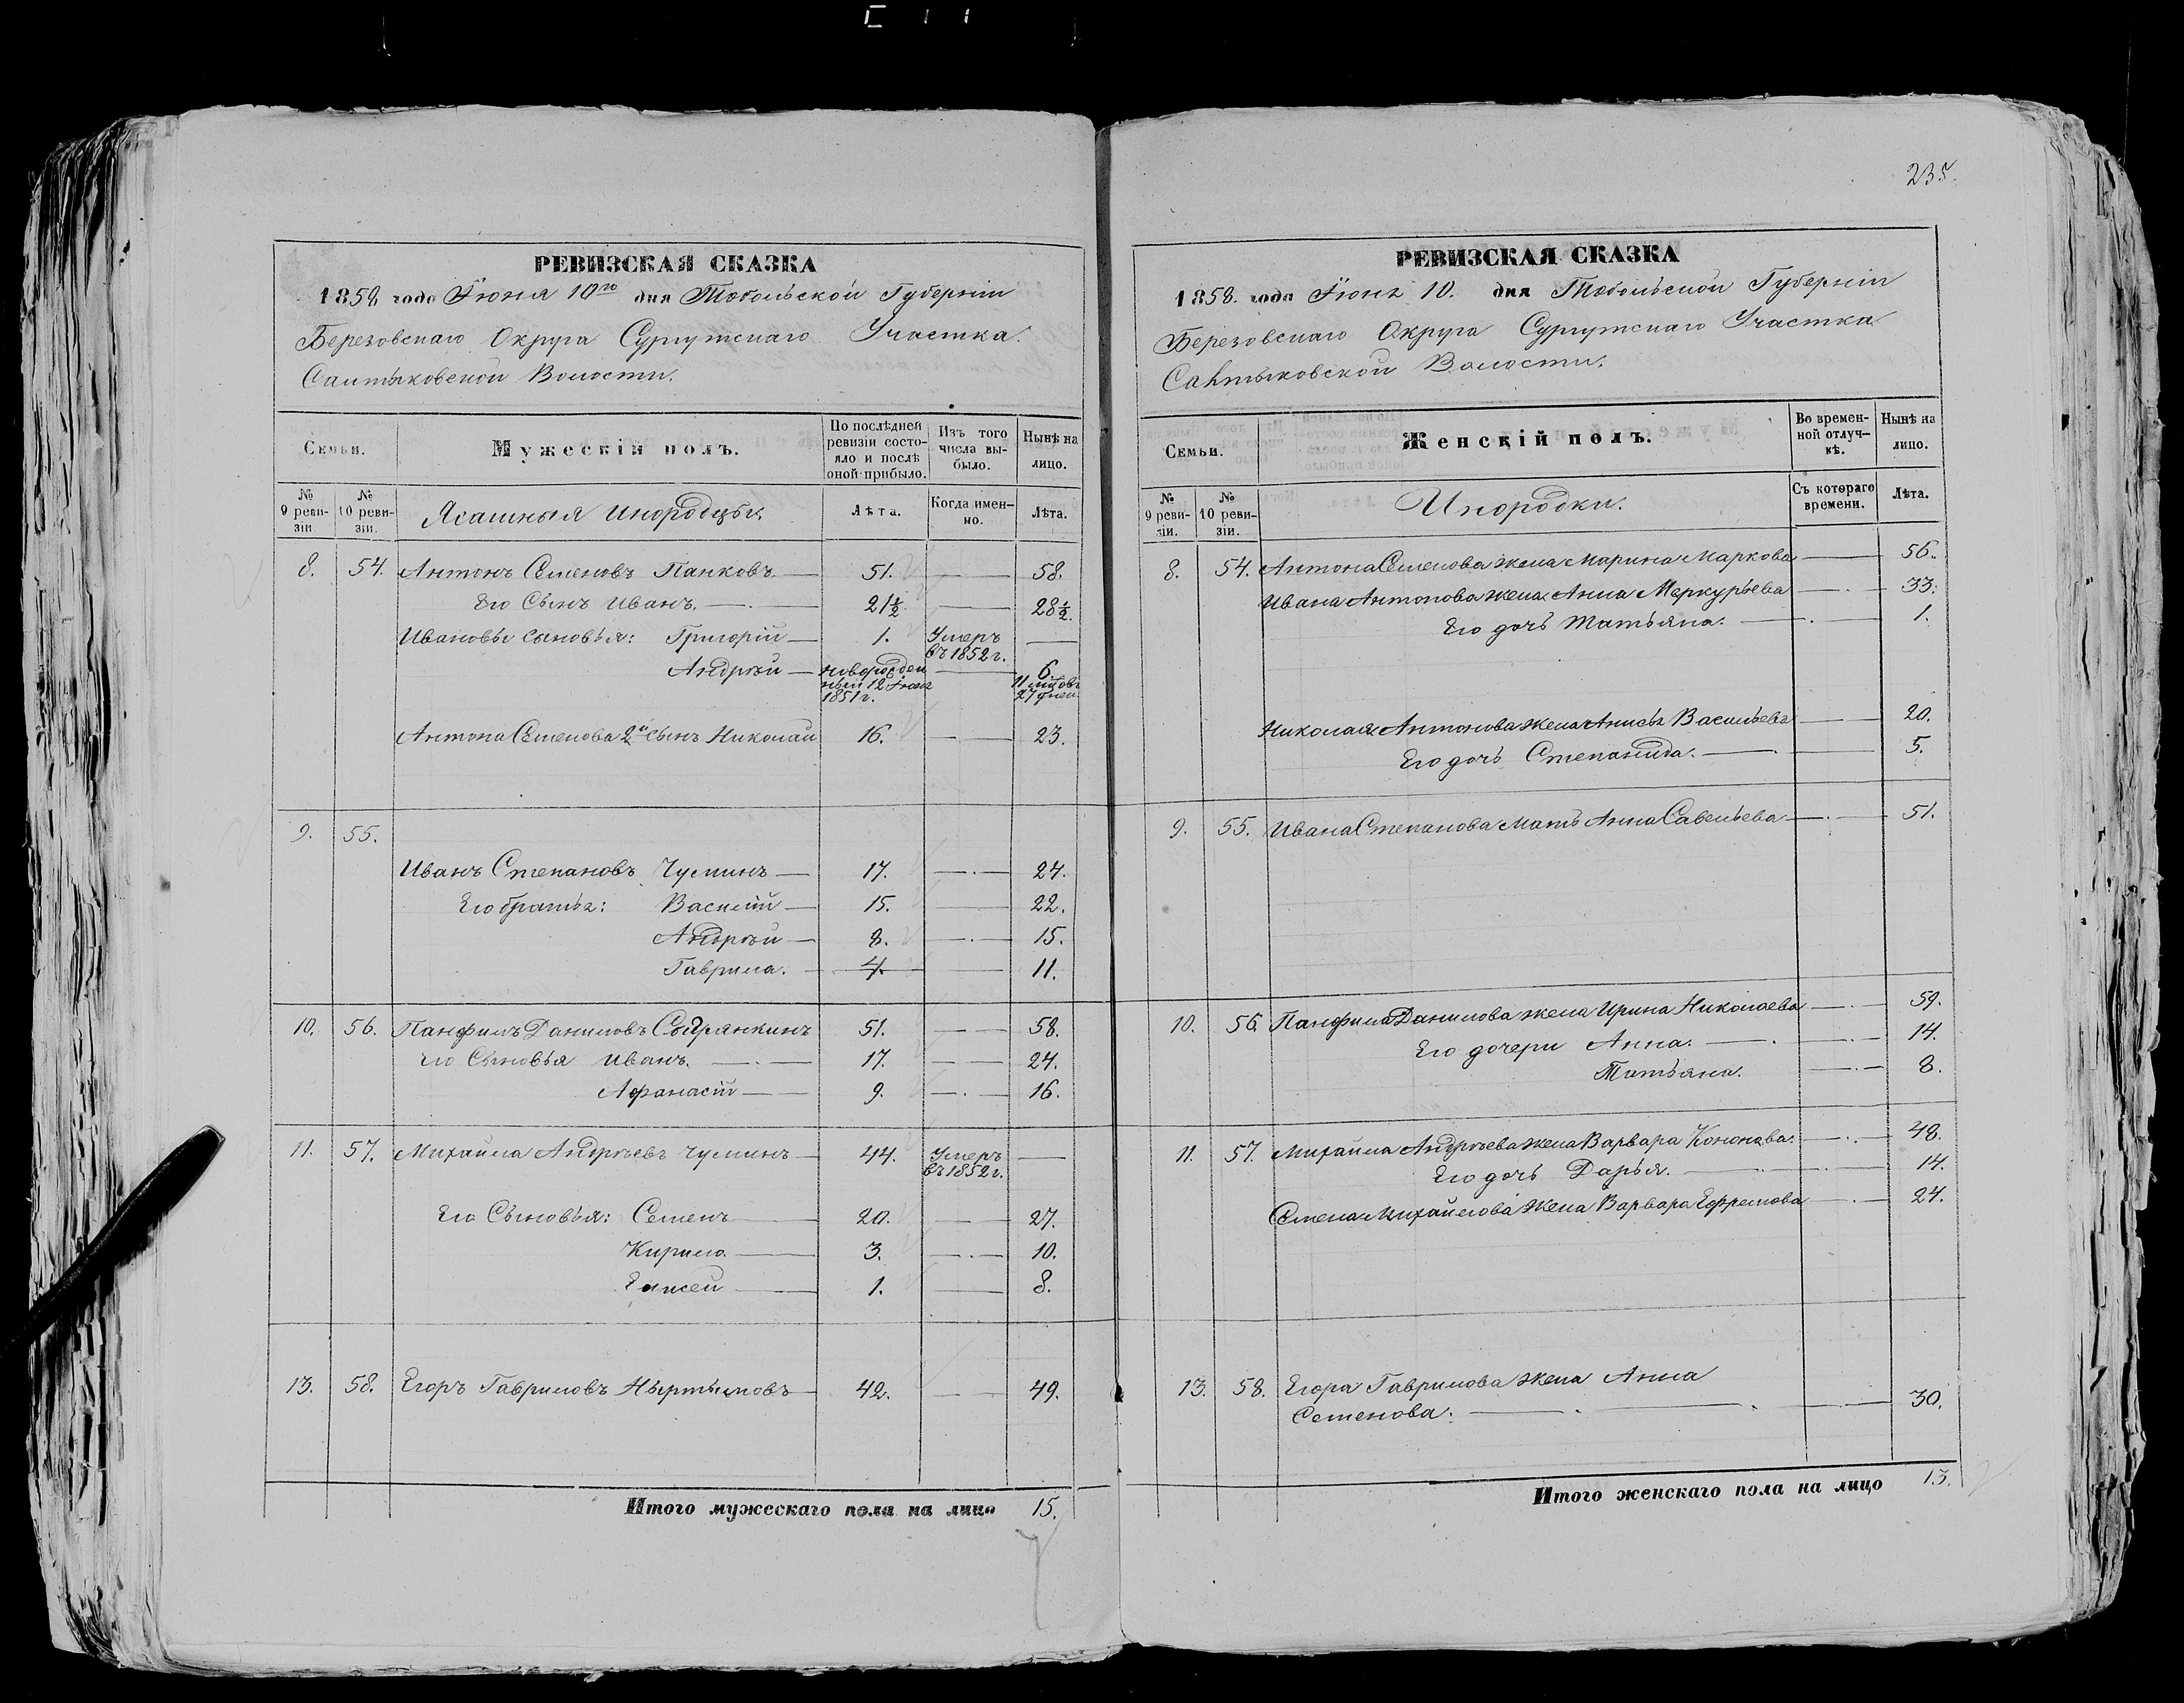 235.
РЕВИЗСКАЯ СКАЗКА
1858 года Іюня 10го дня Тобольской Губерніи
Березовскаго Округа Сургутскаго Участка.
Салтыковской Волости.
Семьи.
Мужескій полъ.
По послѣдней ревизіи состояло и послѣ оной прибыло.
Изъ того числа выбыло.
Нынѣ на лицо.
№ 9 ревизіи
№ 10 ревизіи.
Ясашныя инородцы.
Лѣта.
Когда именно.
Лѣта.
8. 54. Антонъ Семеновъ Панковъ — 51. — 58.
Его Сынъ Иванъ. — 21½. — 28½.
Ивановы сыновья: Григорій — 1. Умеръ въ 1852 г. —
Андрей — новорожденный 12 Іюня 1851 г. — 6 11 мѣсцовъ 27 дней
Антона Семенова 2й сынъ Николай 16. — 23.
9. 55.
Иванъ Степановъ Чуминъ — 17. — 24.
Его братья: Василій — 15. — 22.
Андрѣй — 8. — 15.
Гаврила. — 4. — 11.
10. 56. Панфилъ Даниловъ 51. — 58.
Его Сыновья Иванъ. — 17. — 24.
Афанасій — 9. — 16.
11. 57. Михайла Андрѣевъ Чуминъ — 44. Умеръ въ 1852 г. —
Его Сыновья: Семенъ — 20. — 27.
Кирило — 3. — 10.
Елисей — 1. — 8.
13. 58. Егоръ Гавриловъ — 42. — 49.
Итого мужескаго пола на лицо 15.
РЕВИЗСКАЯ СКАЗКА
1858. года Іюня 10. дня Тобольской Губерніи
Березовскаго Округа Сургутскаго Участка
Салтыковской Волости.
Семьи.
Женскій полъ.
Во временной отлучкѣ.
Нынѣ на лицо.
№ 9 ревизіи.
№ 10 ревизіи.
Инородки.
Съ котораго времени.
Лѣта.
8. 54. Антона Семенова жена Марина Маркова — 56.
Ивана Антонова жена Анна Меркурьева — 33.
Его дочь Татьяна. — 1.
Николая Антонова жена Анисья Васильева — 20.
Его дочь Степанида. — 5.
9. 55. Ивана Степанова Мать Анна Савельева — 51.
10. 56. Панфила Данилова жена Ирина Николаева — 59.
Его дочери Анна. — 14.
Татьяна. — 8.
11. 57. Михайла Андрѣева жена Варвара Кононова. — 48.
Его дочь Дарья. — 14.
Семена Михайлова жена Варвара Ефремова — 24.
13. 58. Егора Гаврилова жена Анна
Семенова. — 30.
Итого женскаго пола на лицо 13.